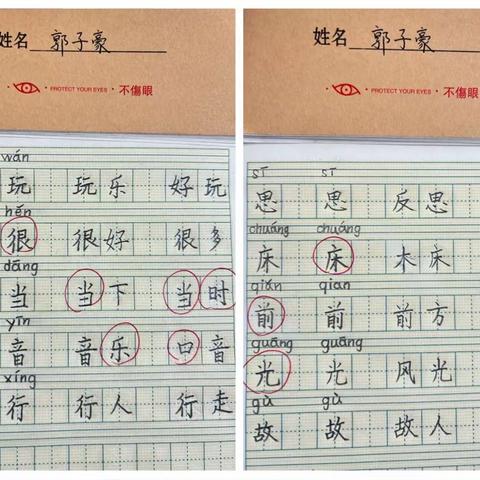 姓名 郭子豪
PROTECT YOUR EYES · 不傷眼
wán
玩 玩乐 好玩
hěn
很 很好 很多
dāng
当 当下 当时
yīn
音 音乐 口音
xíng
行 行人 行走
姓名 郭子豪
PROTECT YOUR EYES · 不傷眼
sī sī
思 思 反思
chuáng chuáng
床 床 木床
qián qian
前 前 前方
guāng guāng
光 光 风光
gù gù
故 故 故人